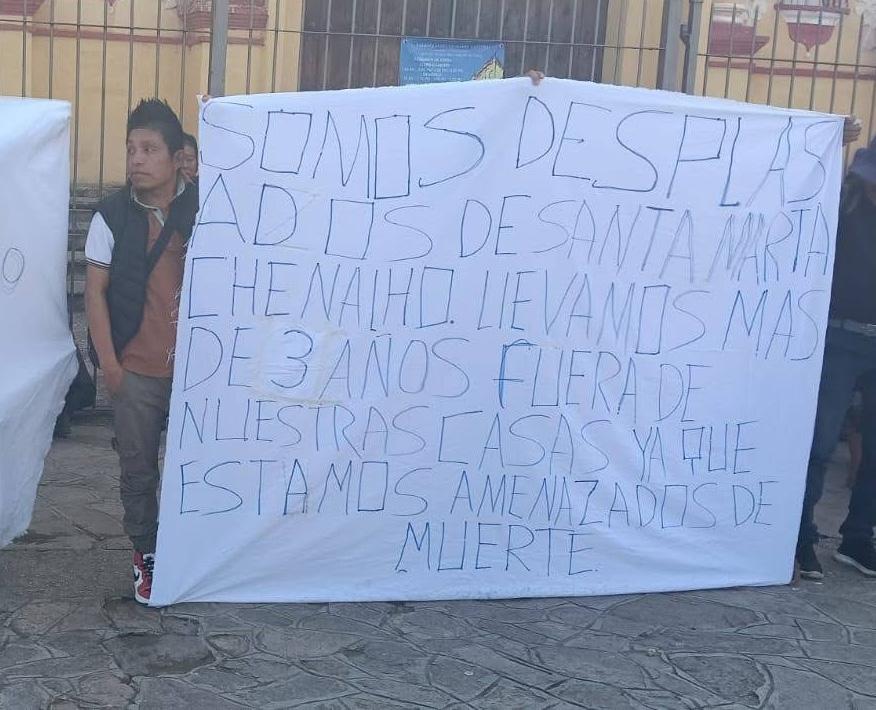 SOMOS DESPLAS
ADOS DE SANTA MARTA
CHENALHO. LLEVAMOS MAS
DE 3 AÑOS FUERA DE
NUESTRAS CASAS YA QUE
ESTAMOS AMENAZADOS DE
MUERTE.